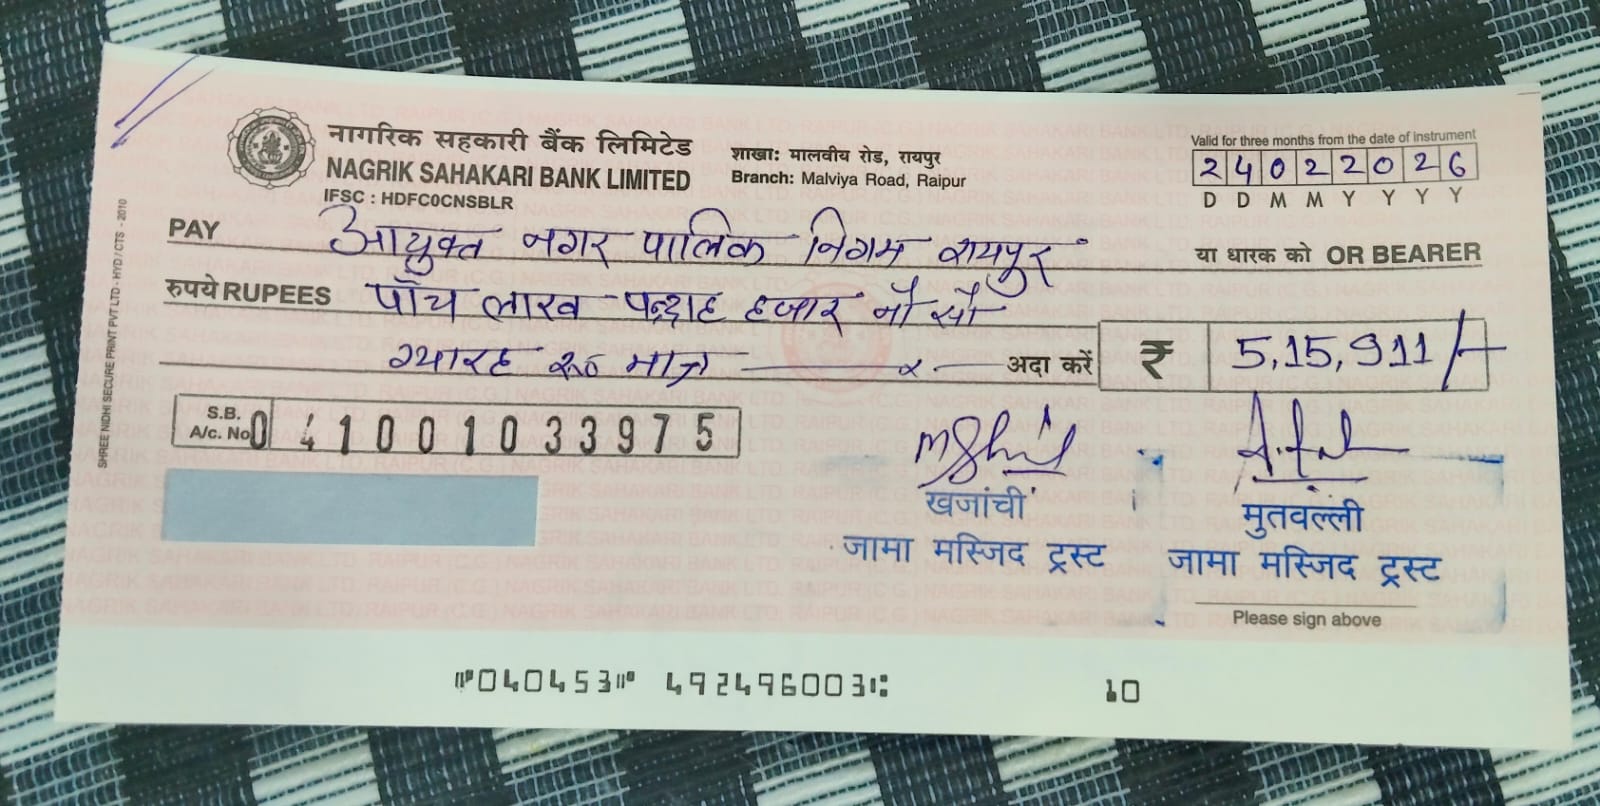 नागरिक सहकारी बैंक लिमिटेड
NAGRIK SAHAKARI BANK LIMITED
IFSC : HDFC0CNSBLR
शाखा: मालवीय रोड, रायपुर
Branch: Malviya Road, Raipur
Valid for three months from the date of instrument
2 4 0 2 2 0 2 6
D D M M Y Y Y Y
PAY आयुक्त नगर पालिक निगम रायपुर या धारक को OR BEARER
रुपये RUPEES पाँच लाख पन्द्राह हजार नौ सौ
ग्यारह रू० मात्र अदा करें ₹ 5,15,911/-
S.B.
A/c. No. 041001033975
खजांची
जामा मस्जिद ट्रस्ट
मुतवल्ली
जामा मस्जिद ट्रस्ट
Please sign above
⑈040453⑈ 492496003⑆ 10
SHREE NIDHI SECURE PRINT PVT LTD - HYD / CTS - 2010